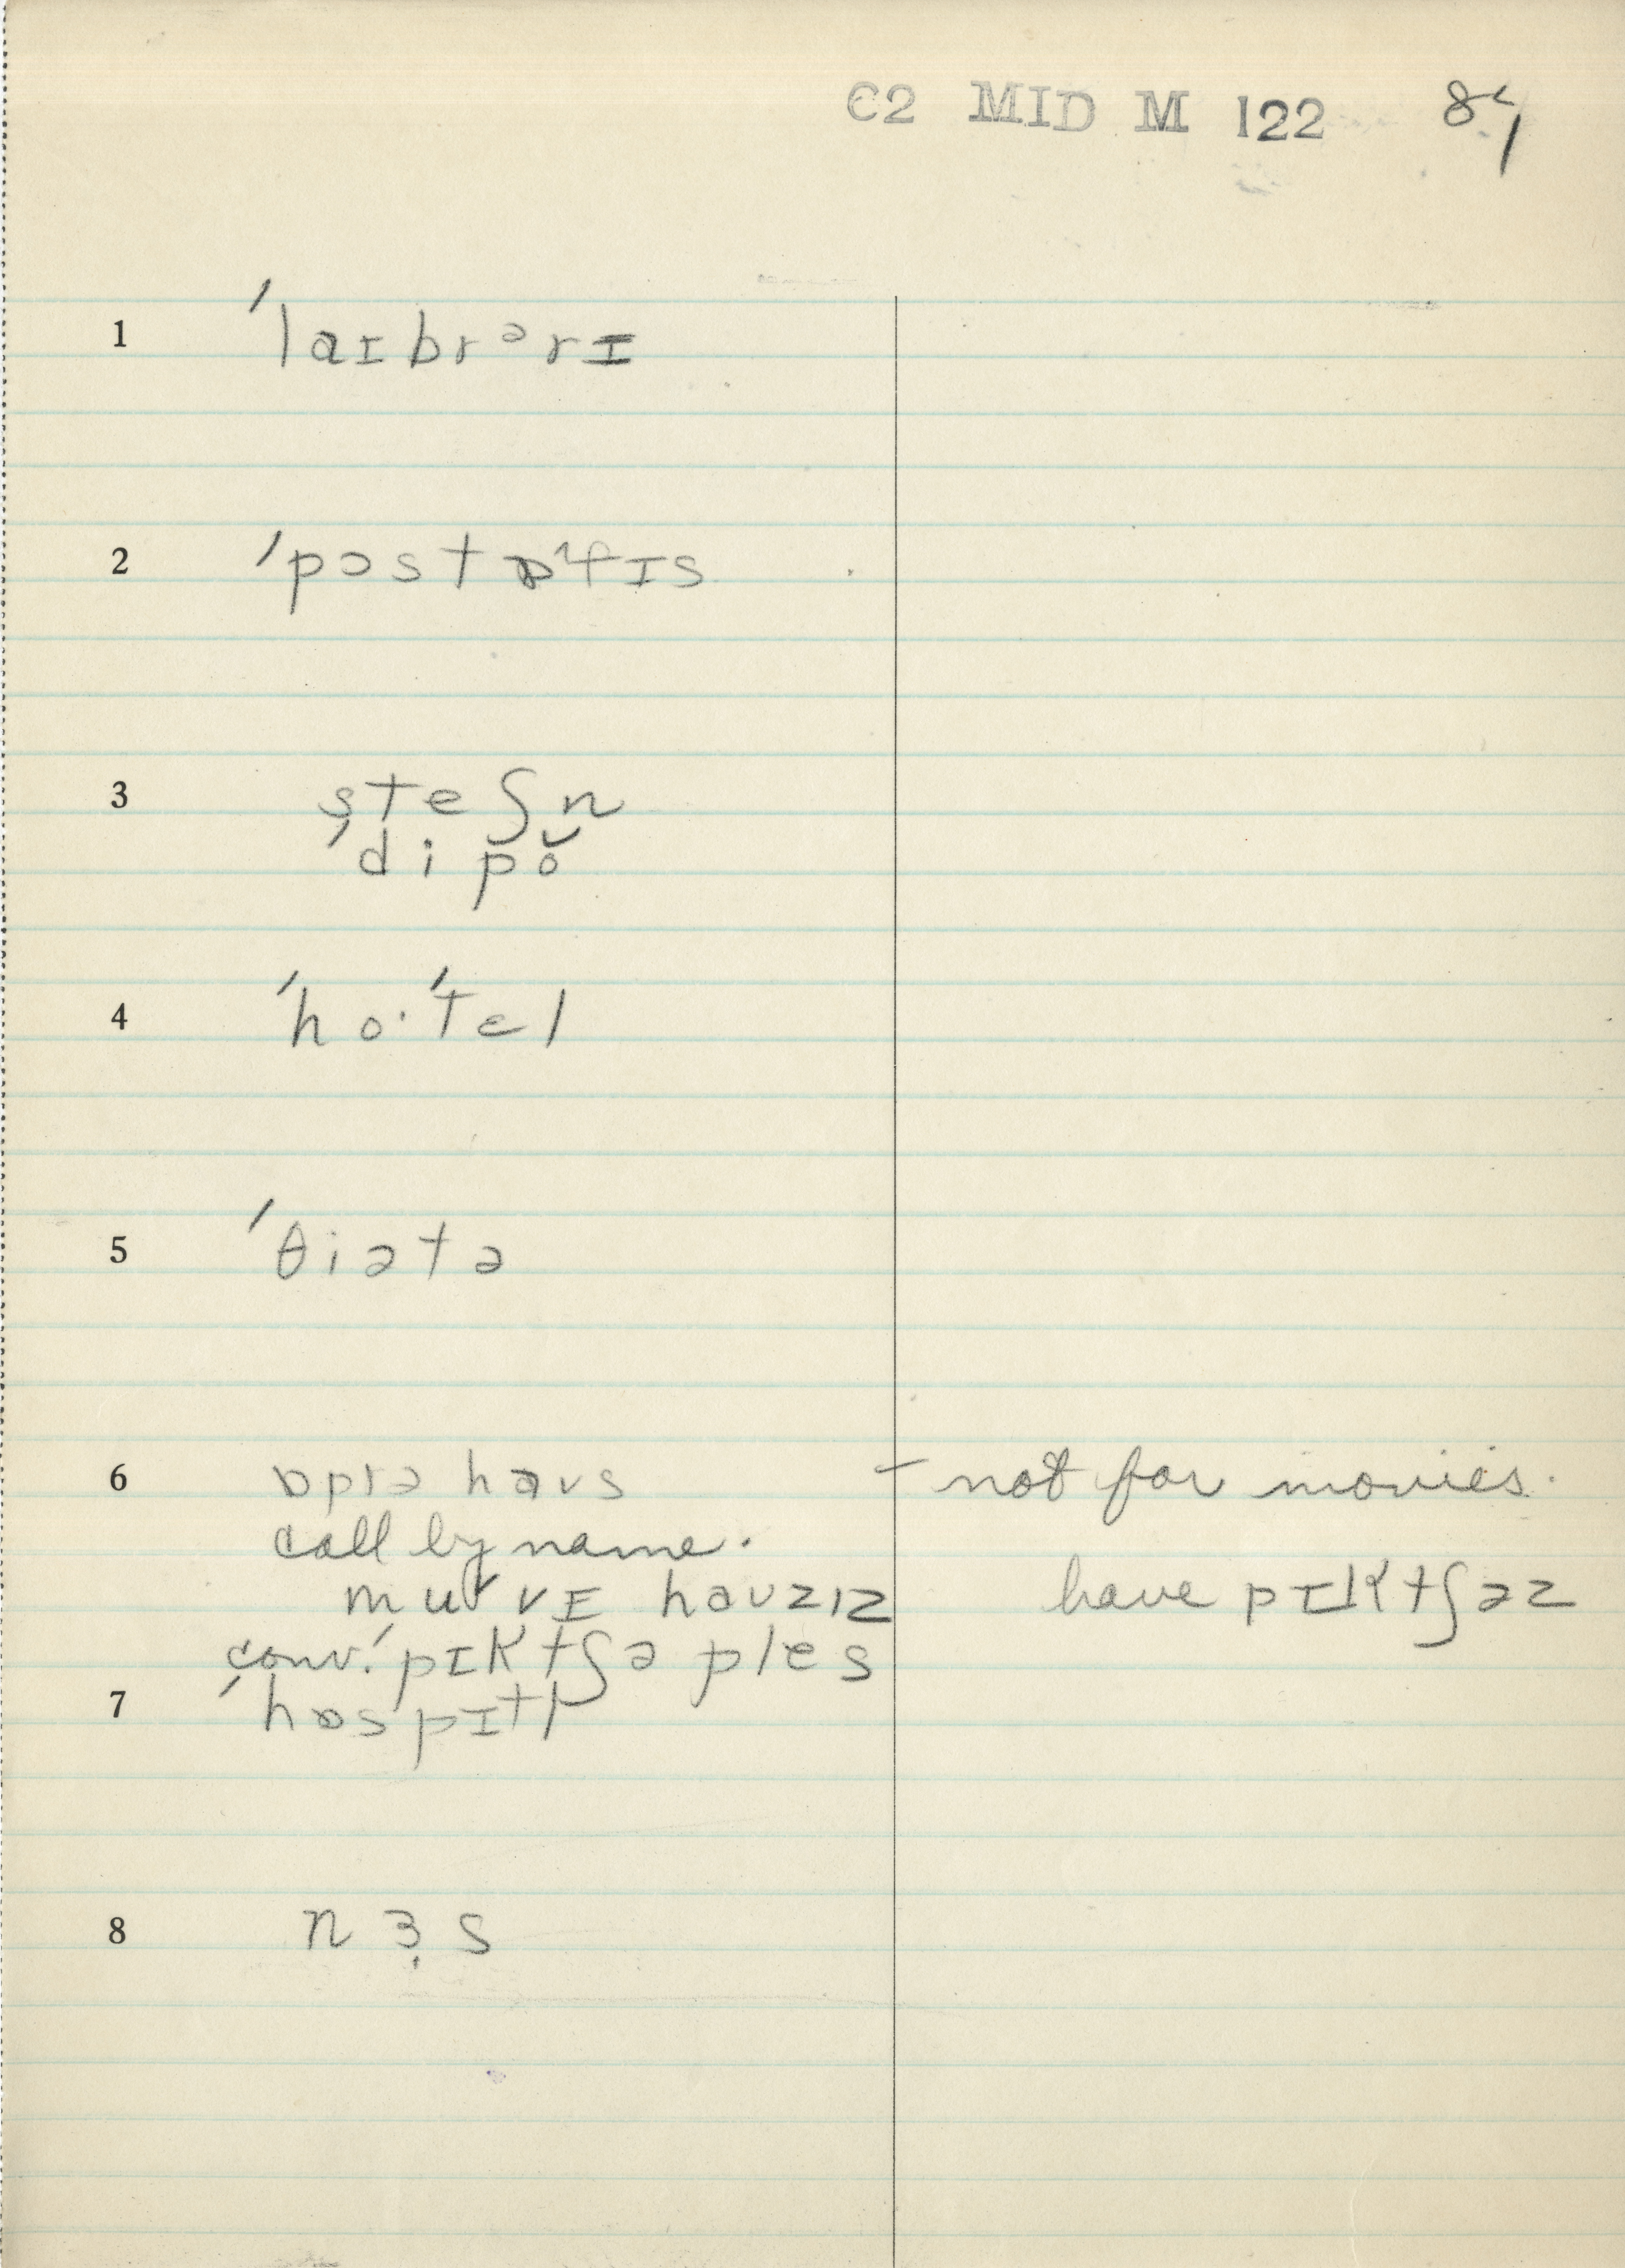 C2 MID M 122 84
1 ˈlaɪbrᵊrɪ
2 ˈpɔstɒfɪs
3 steʃn
ˈdipŏ
4 ˈhoˑˈtɛl
5 ˈθiətə
6 ɒprə haʊs – not for movies.
call by name.
muᵛvɪ haʊzɪz have pɪktʃəz
conv. ˈpɪktʃə ples
7 ˈhɒspɪtl̩
8 nɜ̩s